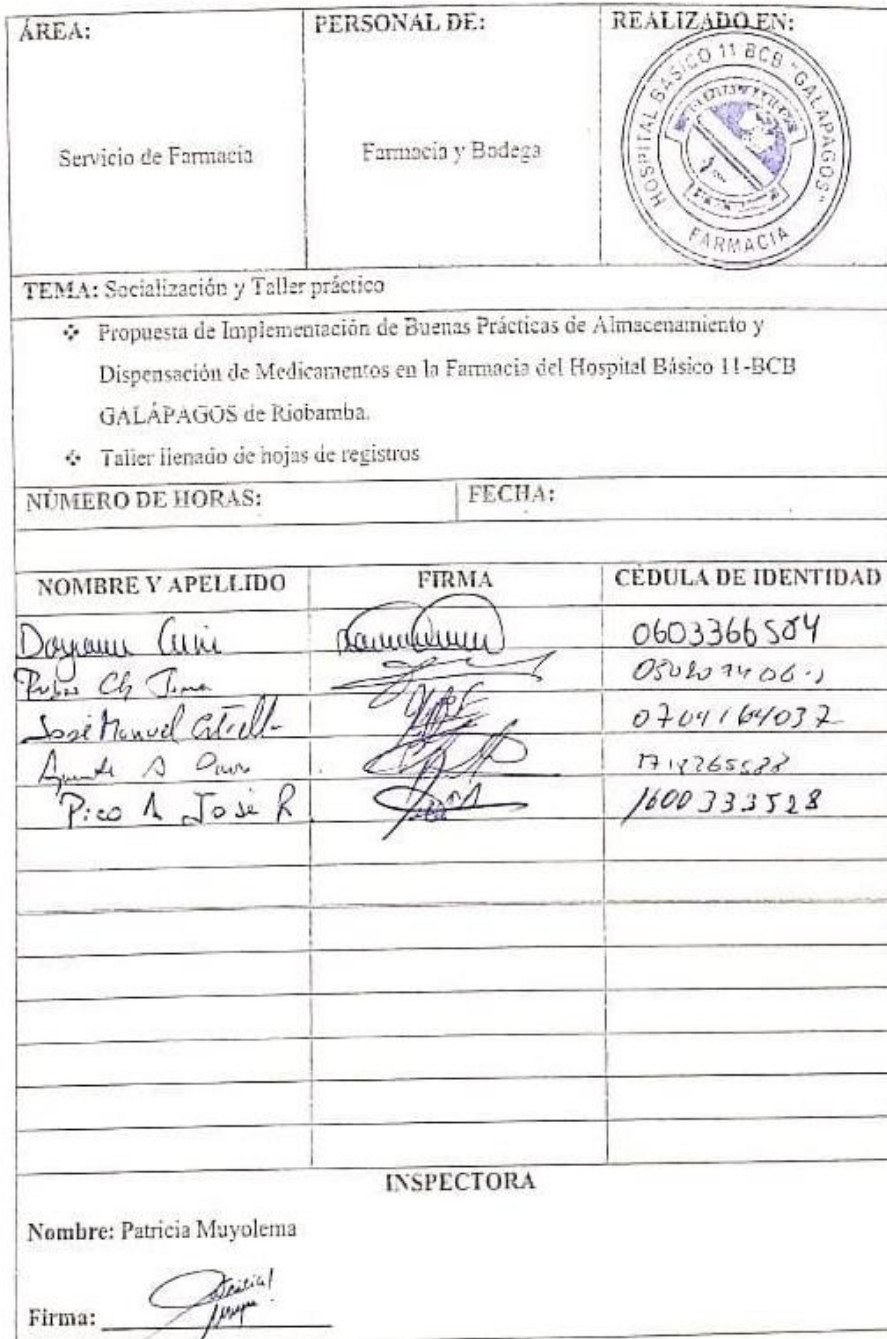 ÁREA:
PERSONAL DE:
REALIZADO EN:
Servicio de Farmacia
Farmacia y Bodega
HOSPITAL BÁSICO 11 BCB "GALAPAGOS"
FARMACIA
TEMA: Socialización y Taller práctico
❖ Propuesta de Implementación de Buenas Prácticas de Almacenamiento y
Dispensación de Medicamentos en la Farmacia del Hospital Básico 11-BCB
GALÁPAGOS de Riobamba.
❖ Taller llenado de hojas de registros
NÚMERO DE HORAS:
FECHA:
NOMBRE Y APELLIDO FIRMA CÉDULA DE IDENTIDAD
José Manuel 0704164037
Pico José R 1600333528
INSPECTORA
Nombre: Patricia Muyolema
Firma: